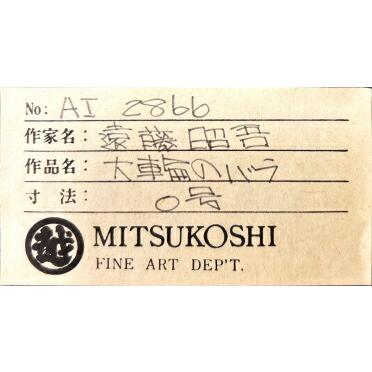 No: AI 2866
作家名: 遠藤昭吾
作品名: 大輪のバラ
寸法: 0号
越 MITSUKOSHI
FINE ART DEP'T.